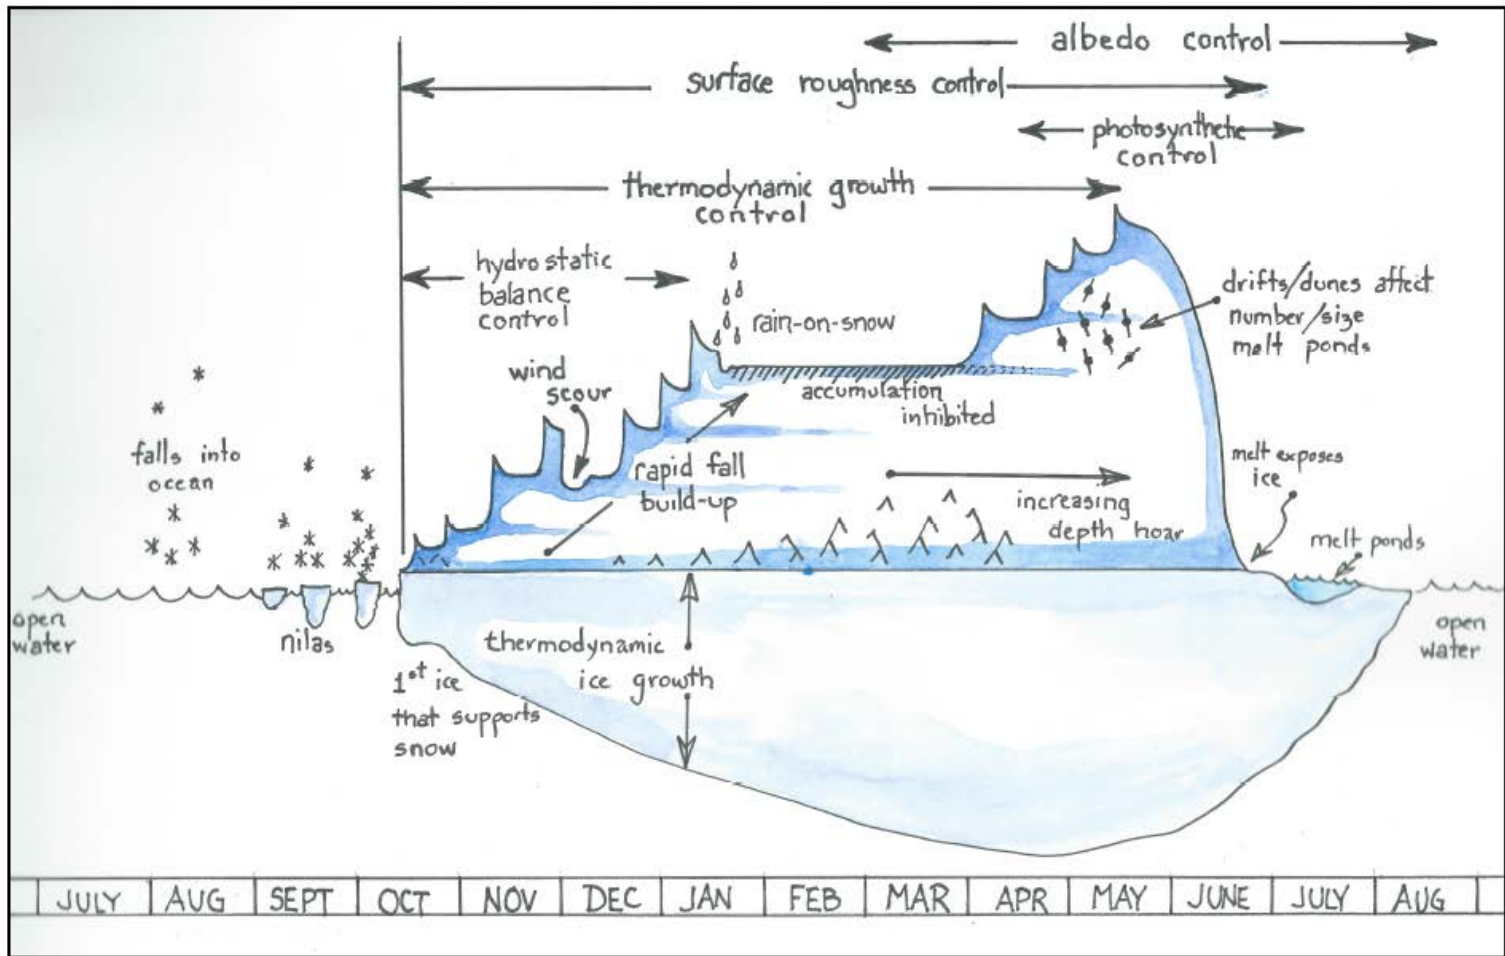 albedo control
surface roughness control
photosynthetic
control
thermodynamic growth
control
hydrostatic
balance
control
rain-on-snow
drifts/dunes affect
number/size
melt ponds
wind
scour
accumulation
inhibited
falls into
ocean
rapid fall
build-up
increasing
depth hoar
melt exposes
ice
melt ponds
open
water
nilas
1st ice
that supports
snow
thermodynamic
ice growth
open
water
JULY AUG SEPT OCT NOV DEC JAN FEB MAR APR MAY JUNE JULY AUG